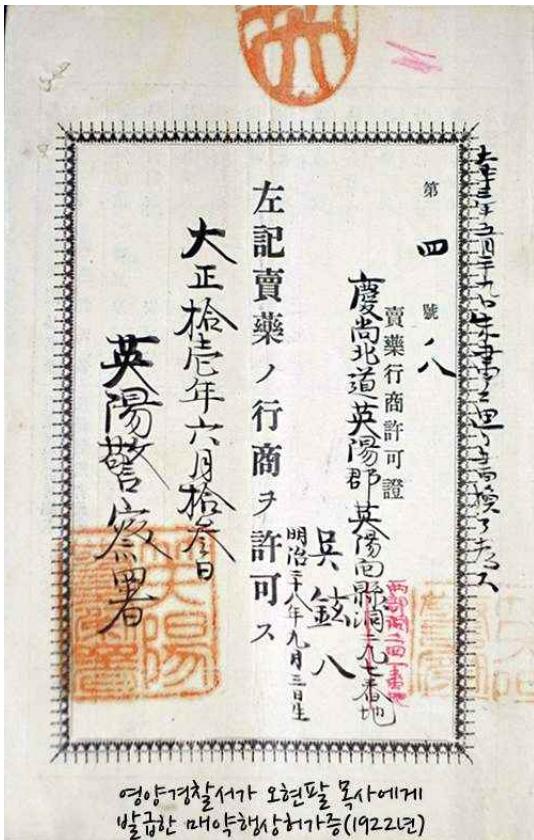 第四號ノ八
賣藥行商許可證
慶尚北道英陽郡英陽面縣洞二九七番地
西部洞二四一番地
吳鉉八
明治三十八年九月三日生
左記賣藥ノ行商ヲ許可ス
大正拾壱年六月拾叁日
英陽警察署
영양경찰서가 오현팔 목사에게
발급한 매약행상허가증(1922년)